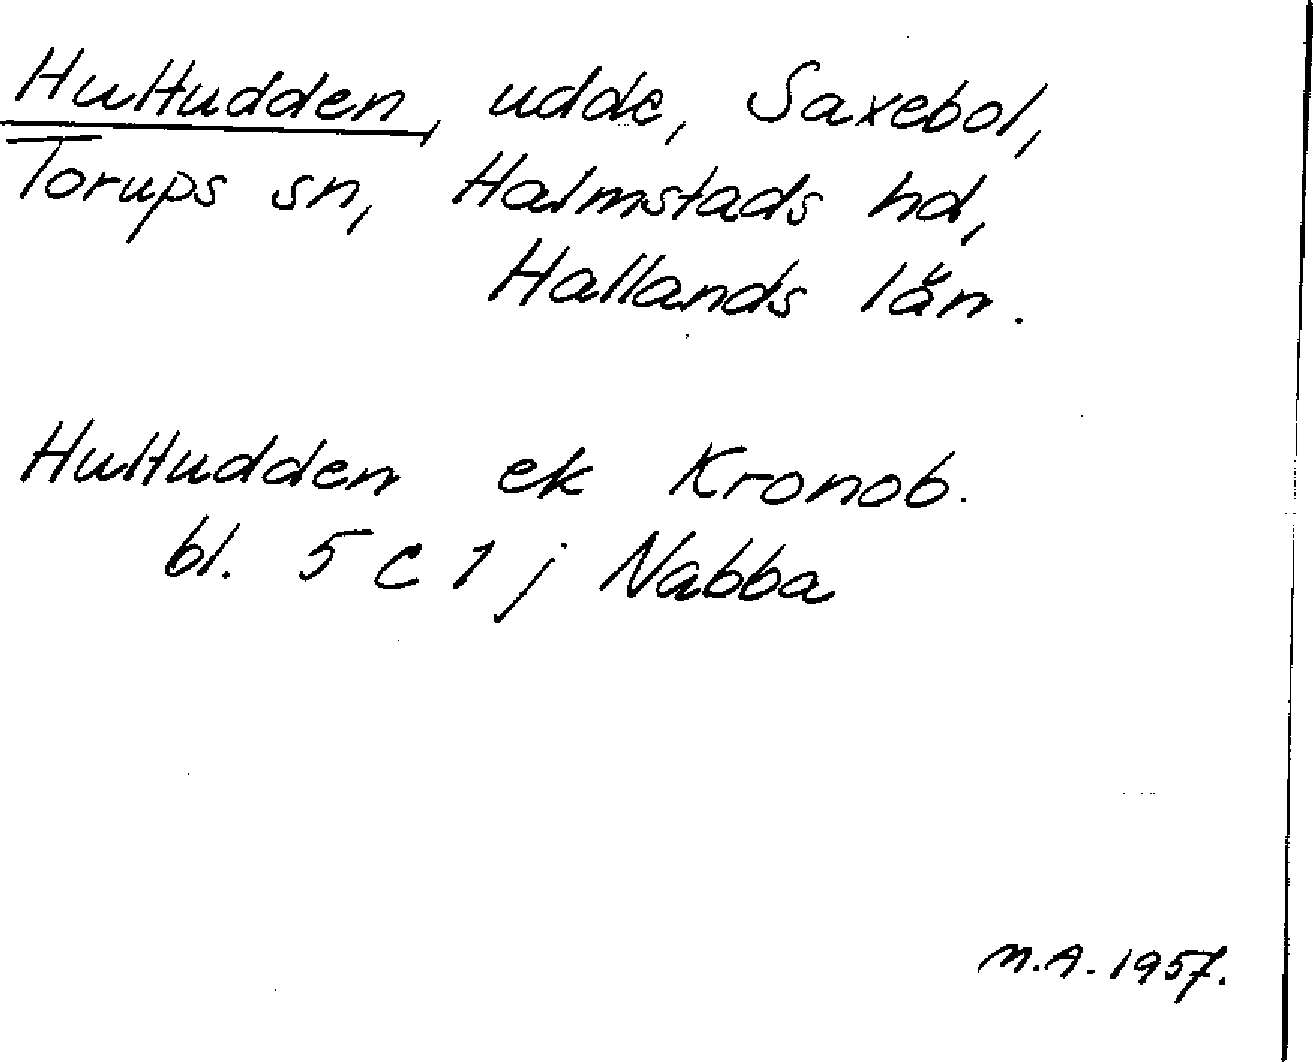 Hultudden, udde, Saxebol,
Torups sn, Halmstads hd,
Hallands län.
Hultudden ek Kronob.
bl. 5 C 1 j Nabba
M.A. 1957.